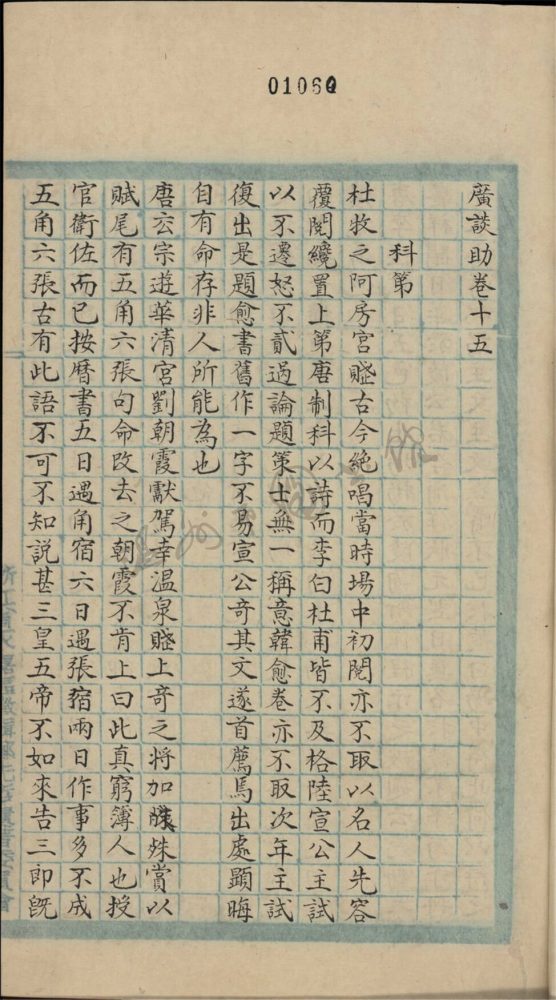 01060
廣談助卷十五
科第
杜牧之阿房宮賦古今絶唱當時場中初閱亦不取以名人先容
覆閱纔置上第唐制科以詩而李白杜甫皆不及格陸宣公主試
以不遷怒不貳過論題策士無一稱意韓愈卷亦不取次年主試
復出是題愈書舊作一字不易宣公奇其文遂首薦焉出處顯晦
自有命存非人所能為也
唐玄宗遊華清宮劉朝霞獻駕幸溫泉賦上奇之將加殊賞以
賦尾有五角六張句命改去之朝霞不肯上曰此真窮薄人也授
官衛佐而已按曆書五日遇角宿六日遇張宿兩日作事多不成
五角六張古有此語不可不知說甚三皇五帝不如來告三郎既